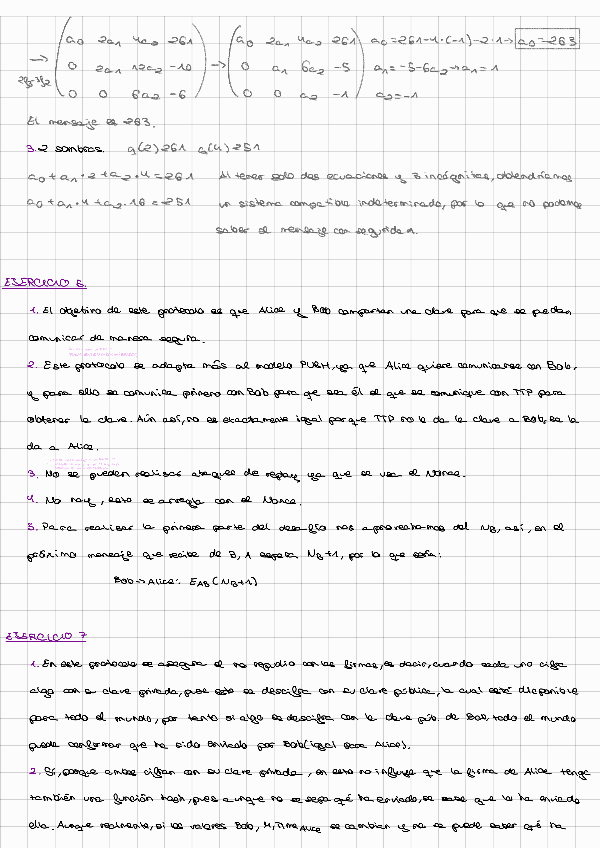 a0 2a1 4a2 261 a0 2a1 4a2 261 a0=261-4·(-1)-2·1→ a0=263
→ 0 2a1 12a2 -10 → 0 a1 6a2 -5 a1=-5-6a2→a1=1
0 0 6a2 -6 0 0 a2 -1 a2=-1
El mensaje es 263.
3. 2 sombras. g(2)261 g(4)251
a0+a1·2+a2·4=261 Al tener solo dos ecuaciones y 3 incógnitas, obtendríamos
a0+a1·4+a2·16=251 un sistema compatible indeterminado, por lo que no podemos
saber el mensaje con seguridad.
EJERCICIO 6.
1. El objetivo de este protocolo es que Alice y Bob compartan una clave para que se puedan
comunicar de manera segura.
2. Este protocolo se adapta más al modelo PUSH, ya que Alice quiere comunicarse con Bob,
y para ello se comunica primero con Bob para que sea él el que se comunique con TTP para
obtener la clave. Aún así, no es exactamente igual porque TTP no le da la clave a Bob, se la
da a Alice.
3. No se pueden realizar ataques de replay ya que se usa el Nonce.
4. No hay, esto se arregla con el Nonce.
5. Para realizar la primera parte del desafío nos aprovechamos del NB, así, en el
próximo mensaje que recibe de B, A espera NB+1, por lo que sería:
Bob→Alice: EAB(NB+1)
EJERCICIO 7
1. En este protocolo se asegura el no repudio con las firmas, es decir, cuando cada uno cifra
algo con su clave privada, pues esto se descifra con su clave pública, la cual está disponible
para todo el mundo, por tanto si algo se descifra con la clave púb. de Bob, todo el mundo
puede confirmar que ha sido enviado por Bob (igual para Alice).
2. Sí, porque ambos cifran con su clave privada, en esto no influye que la firma de Alice tenga
también una función hash, pues aunque no se sepa qué ha enviado, se sabe que lo ha enviado
ella. Aunque realmente, si los valores Bob, M, TimeAlice se cambian y no se puede saber qué ha